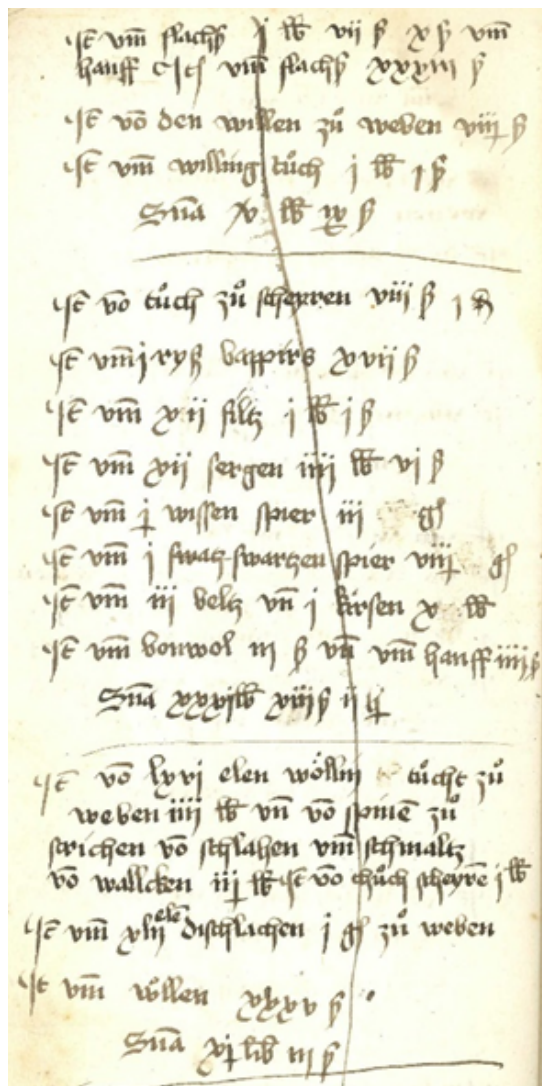 It vm̄ flachß i lb vii ß x ß vm̄
hanff vm̄ flachß xxxiii ß
It vō den willen zů weben viii ß
It vm̄ willing tůch i lb i ß
Sūa x lb ix ß
It vō tůch zů scheyren viii ß i d
It vm̄ i ryß bappirs xvii ß
It vm̄ xii filtz i lb i ß
It vm̄ xii sergen iiii lb vi ß
It vm̄ i wissen spier iii gl
It vm̄ i swatz swartzen spier viii gl
It vm̄ iii beltz vn̄ i kirsen x lb
It vm̄ bonwol iii ß vn̄ vm̄ hanff iiii ß
Sūa xxxi lb xiiii ß ii
It vō lxvi elen wöllin tůcht zů
weben iiii lb vn̄ vō spinē zů
strichen vō schlahen vm̄ schmaltz
vō wallcken iii lb It vō thůch scheyrē i lb
It vm̄ xlii elē dischlachen i gl zů weben
It vm̄ wöllen xxxv ß
Sūa xi lib iii ß